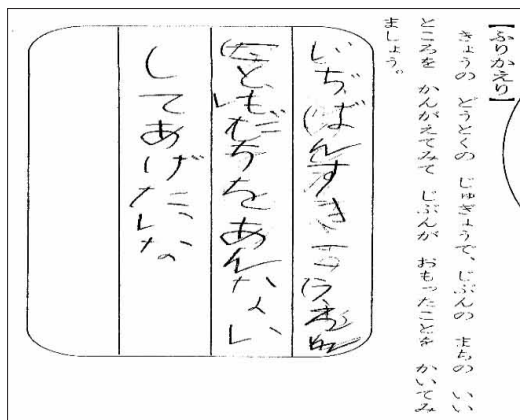 【ふりかえり】
きょうの どうとくの じゅぎょうで、じぶんの まちの いい
ところを かんがえてみて じぶんが おもったことを かいてみ
ましょう。
いちばんすき
ともだちをあんない
してあげたいな